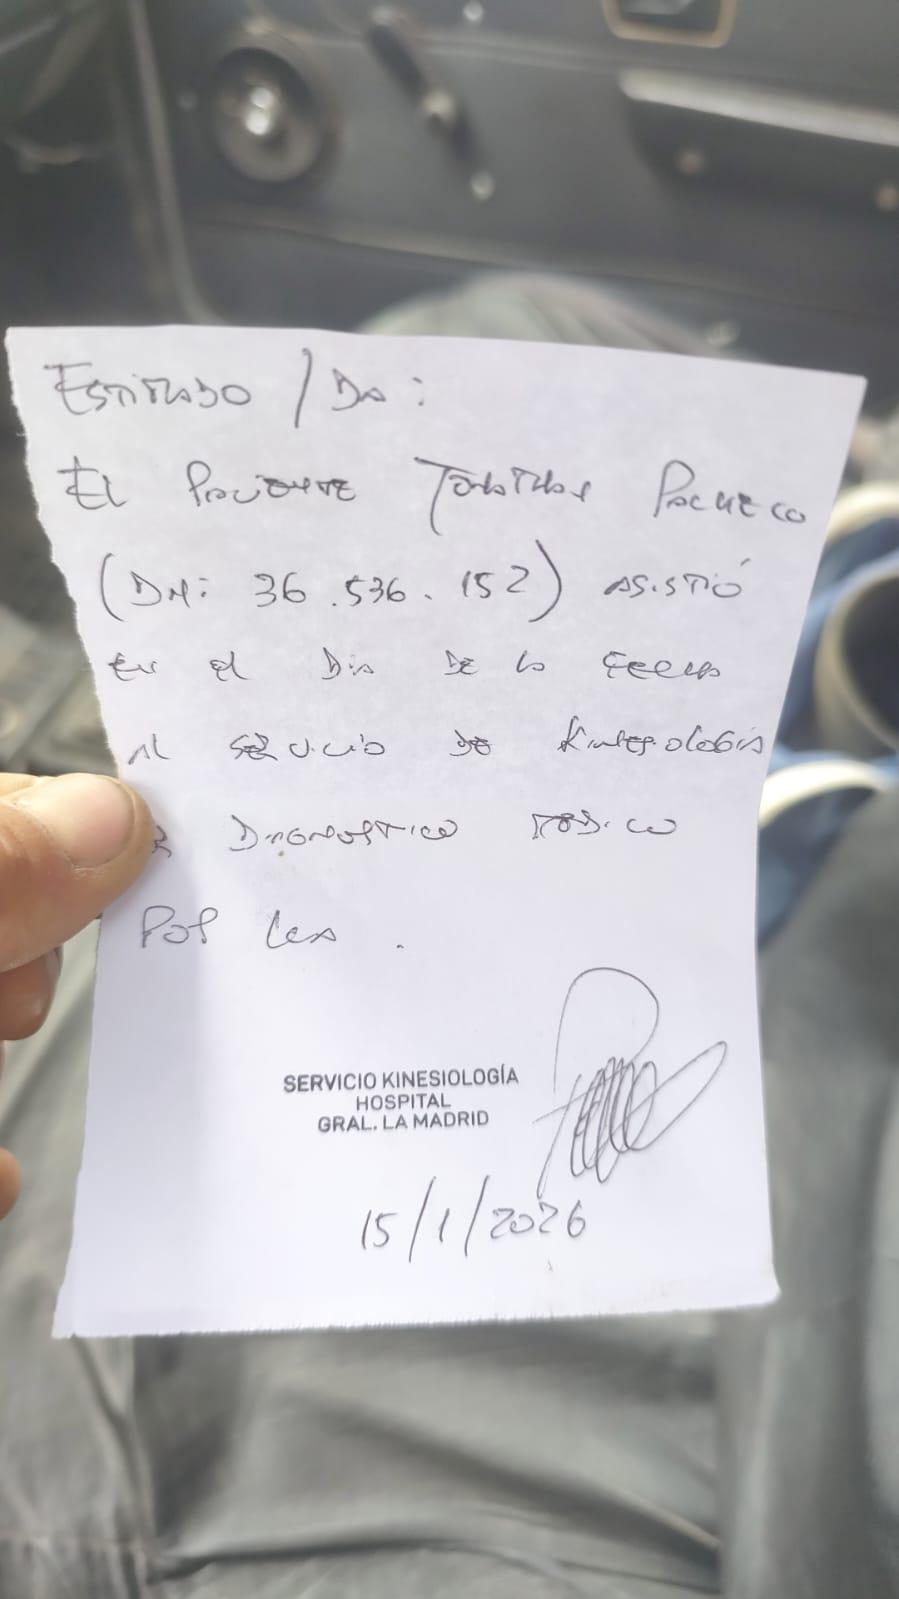 Estimado / Da:
El Paciente Pacheco
(DNI: 36.536.152) asistió
en el Dia de la fecha
al servicio de Kinesiologia
Diagnostico Médico
Por les.
SERVICIO KINESIOLOGÍA
HOSPITAL
GRAL. LA MADRID
15/1/2026